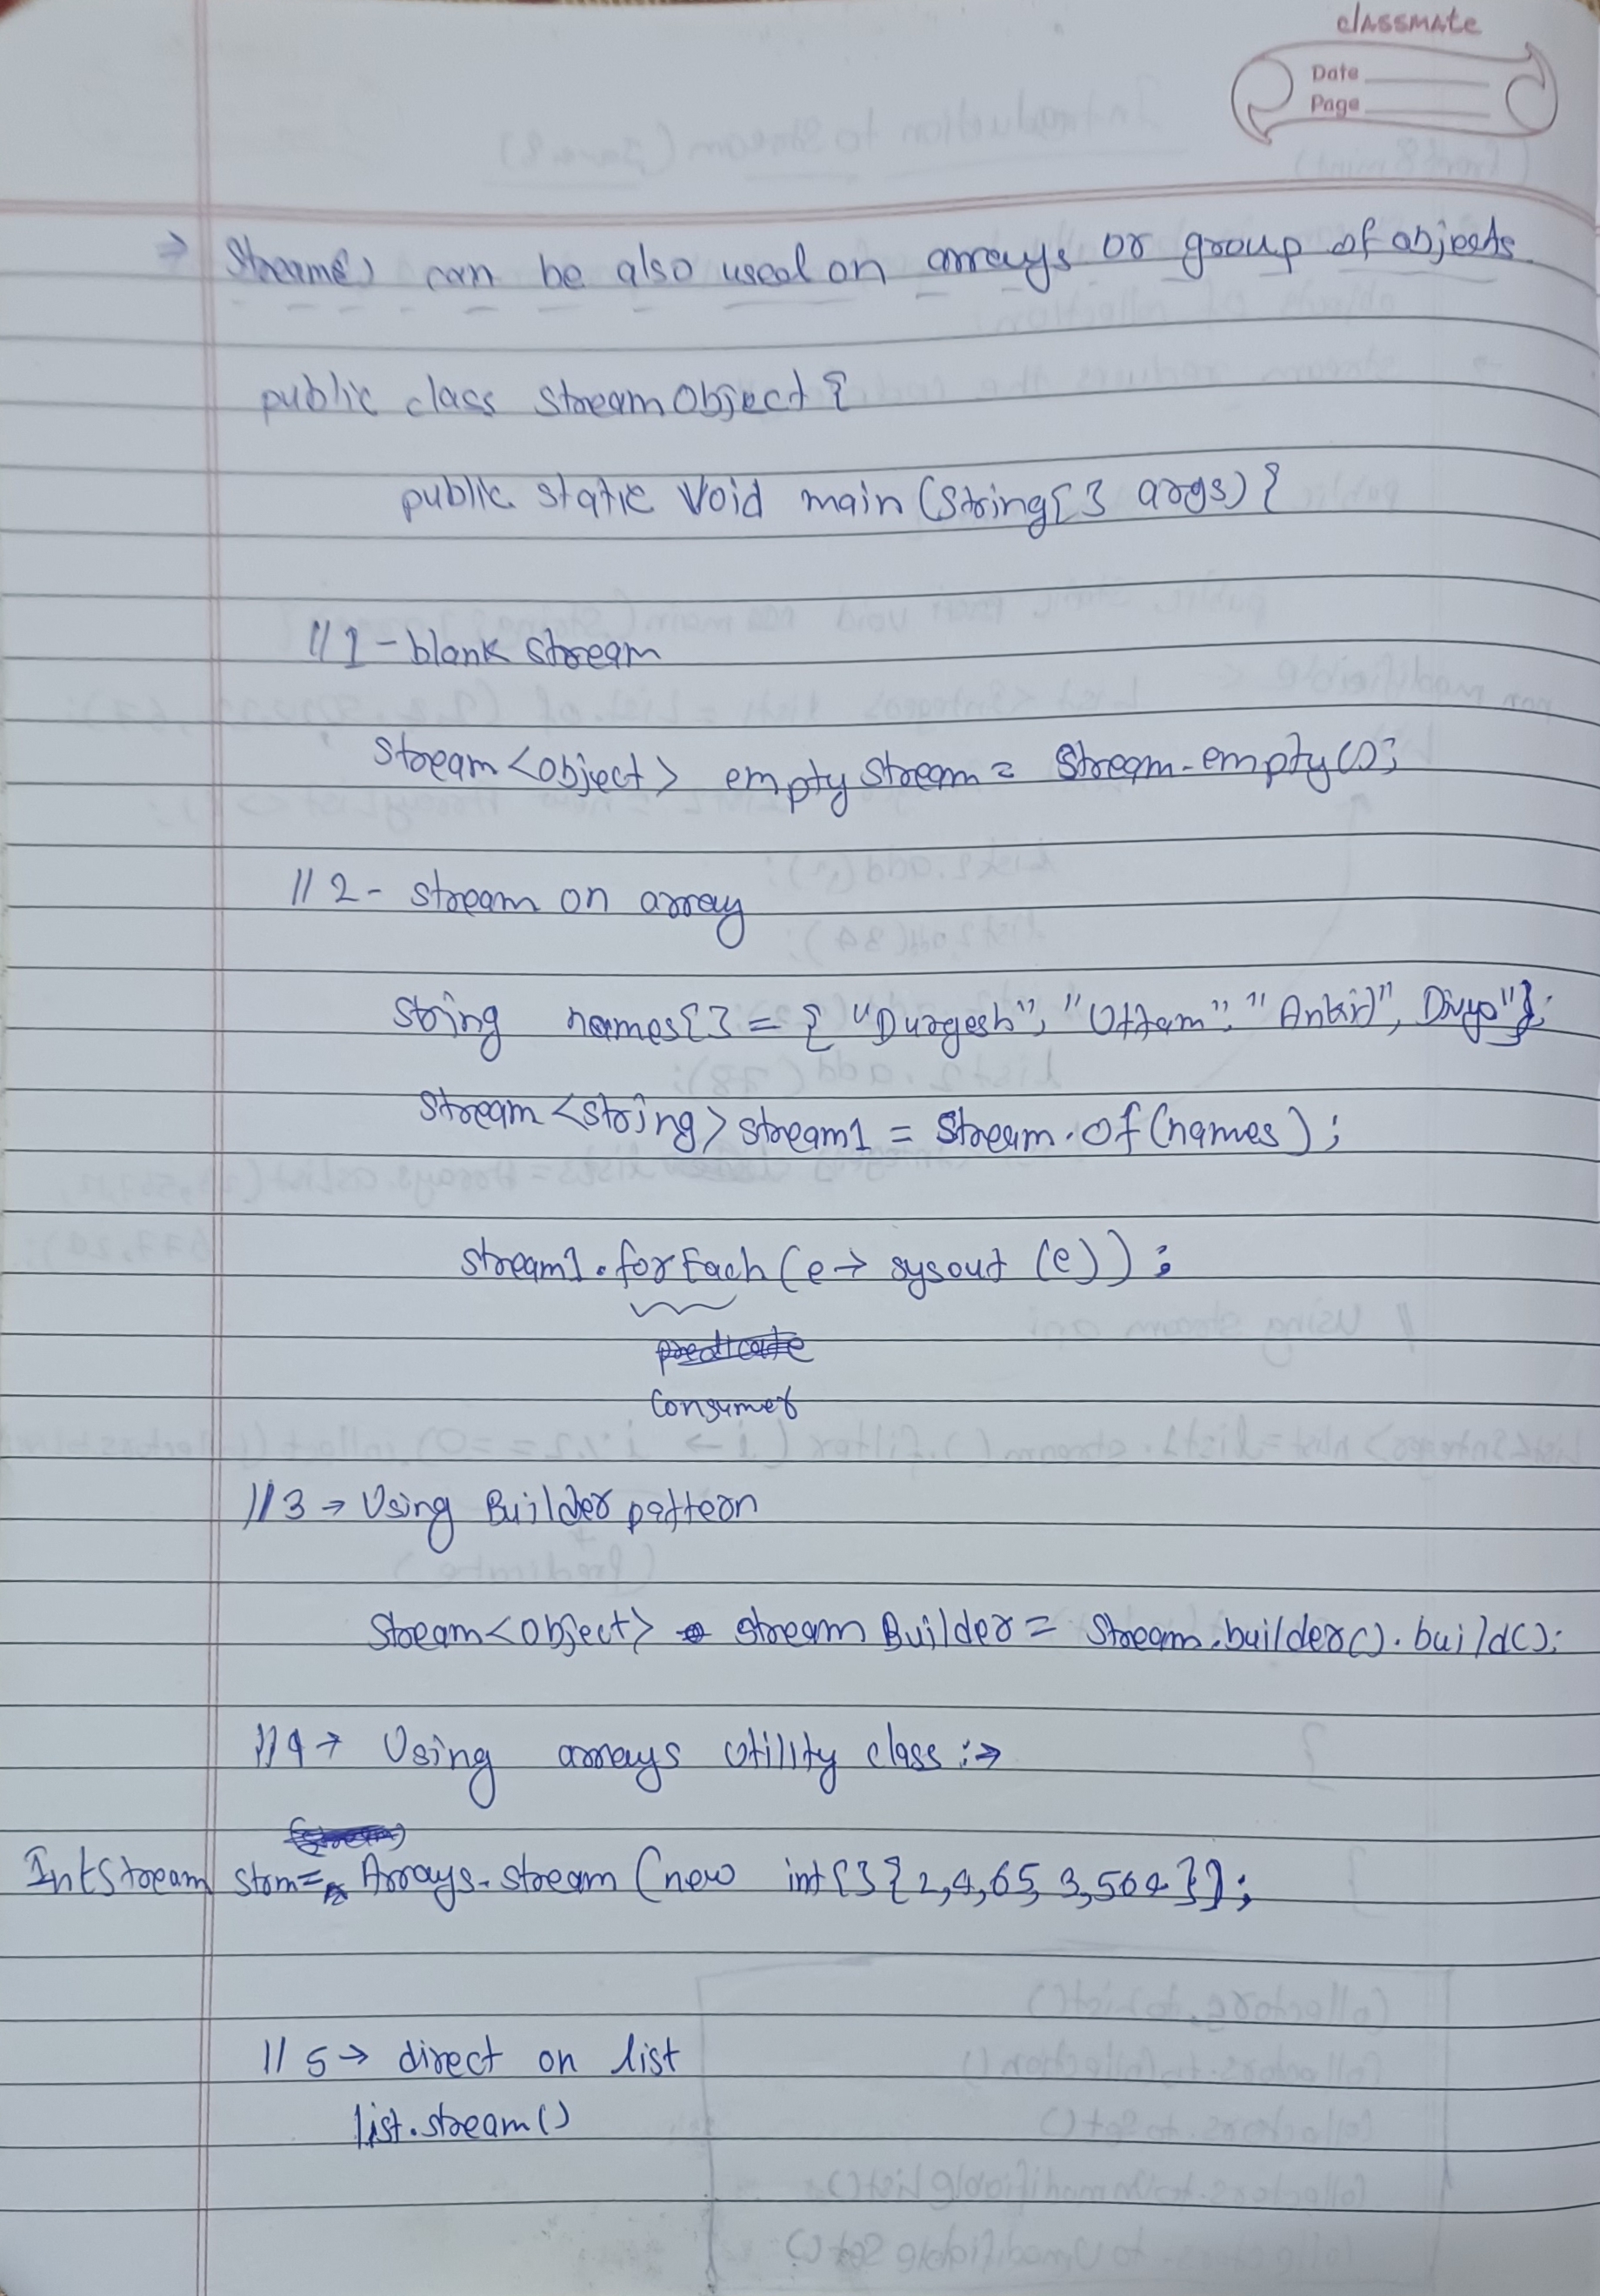 classmate
Date
Page
⇒ Streams can be also used on arrays or group of objects.
public class StreamObject {
public static void main (String[] args) {
// 1 - blank stream
Stream<object> emptyStream = Stream.empty();
// 2 - stream on array
String names[] = { "Durgesh", "Uttam", "Ankit", Divya"};
Stream<string> stream1 = Stream.of(names);
stream1.forEach(e → sysout (e));
predicate
Consumer
// 3 → Using Builder pattern
Stream<object> streamBuilder = Stream.builder().build();
// 4 → Using arrays utility class :→
IntStream strm = Arrays.stream (new int[]{2,4,65,3,564});
// 5 → direct on list
list.stream()